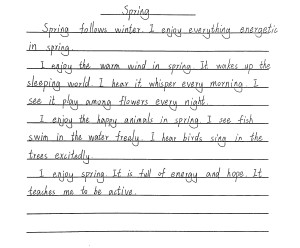 Spring
Spring follows winter. I enjoy everything energetic
in spring.
I enjoy the warm wind in spring. It wakes up the
sleeping world. I hear it whisper every morning. I
see it play among flowers every night.
I enjoy the happy animals in spring. I see fish
swim in the water freely. I hear birds sing in the
trees excitedly.
I enjoy spring. It is full of energy and hope. It
teaches me to be active.